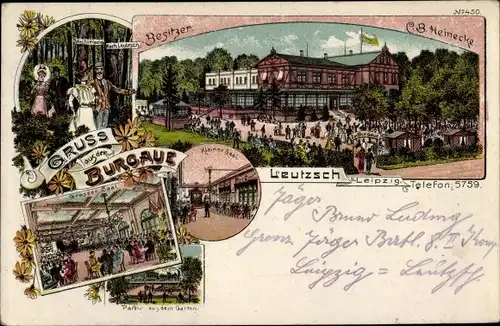 No 450.
Besitzer
C. B. Heinecke
nach Leutzsch
Gruss
aus der
Burgaue
Kleiner Saal
Grosser Saal
Leutzsch
Leipzig.
Telefon: 5759.
Parthie aus dem Garten.
Jäger Bruno Ludwig
Grenz Jäger Batl. 8. II Komp.
Leipzig = Leutzsch